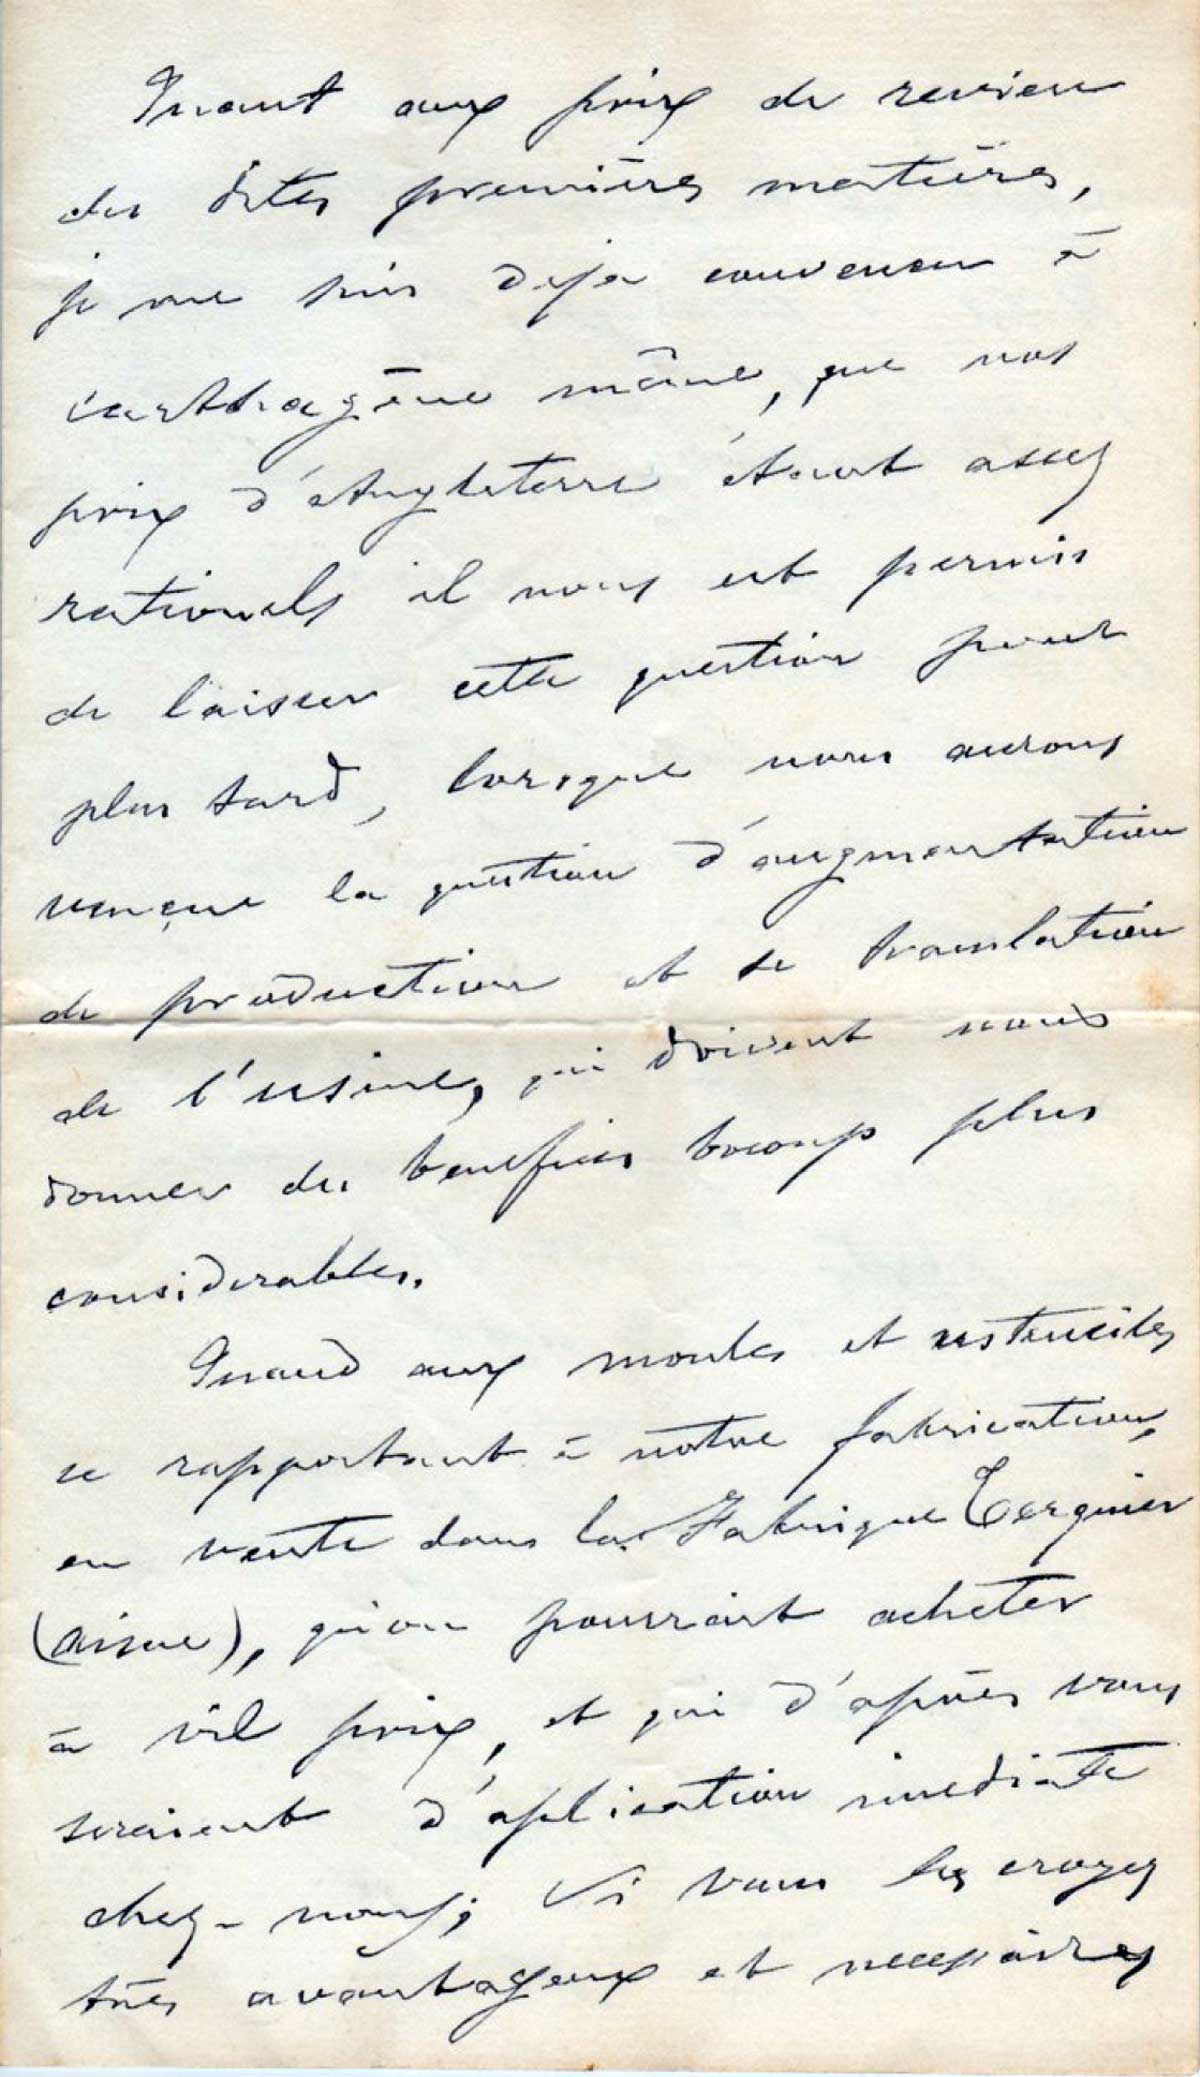 Quant aux prix de revien
des dites premières matières,
je me suis deja convencu à
carthagène même, que nos
prix d'Angleterre étant assez
rationels il nous est permis
de laisser cette question pour
plus tard, lorsque nous aurons
vençue la question d'augmentation
de production et de translation
de l'usine, qui doivent nous
donner des benefices bocoup plus
considerables.
Quand aux moules et ustenciles
se rapportant à notre fabrication,
en vente dans la Fabrique Tergnier
(aisne), qu'on pourrait acheter
à vil prix, et qui d'après vous
seraient d'aplication imediate
chez-nous; Si vous les croyez
très avantageux et necessaires